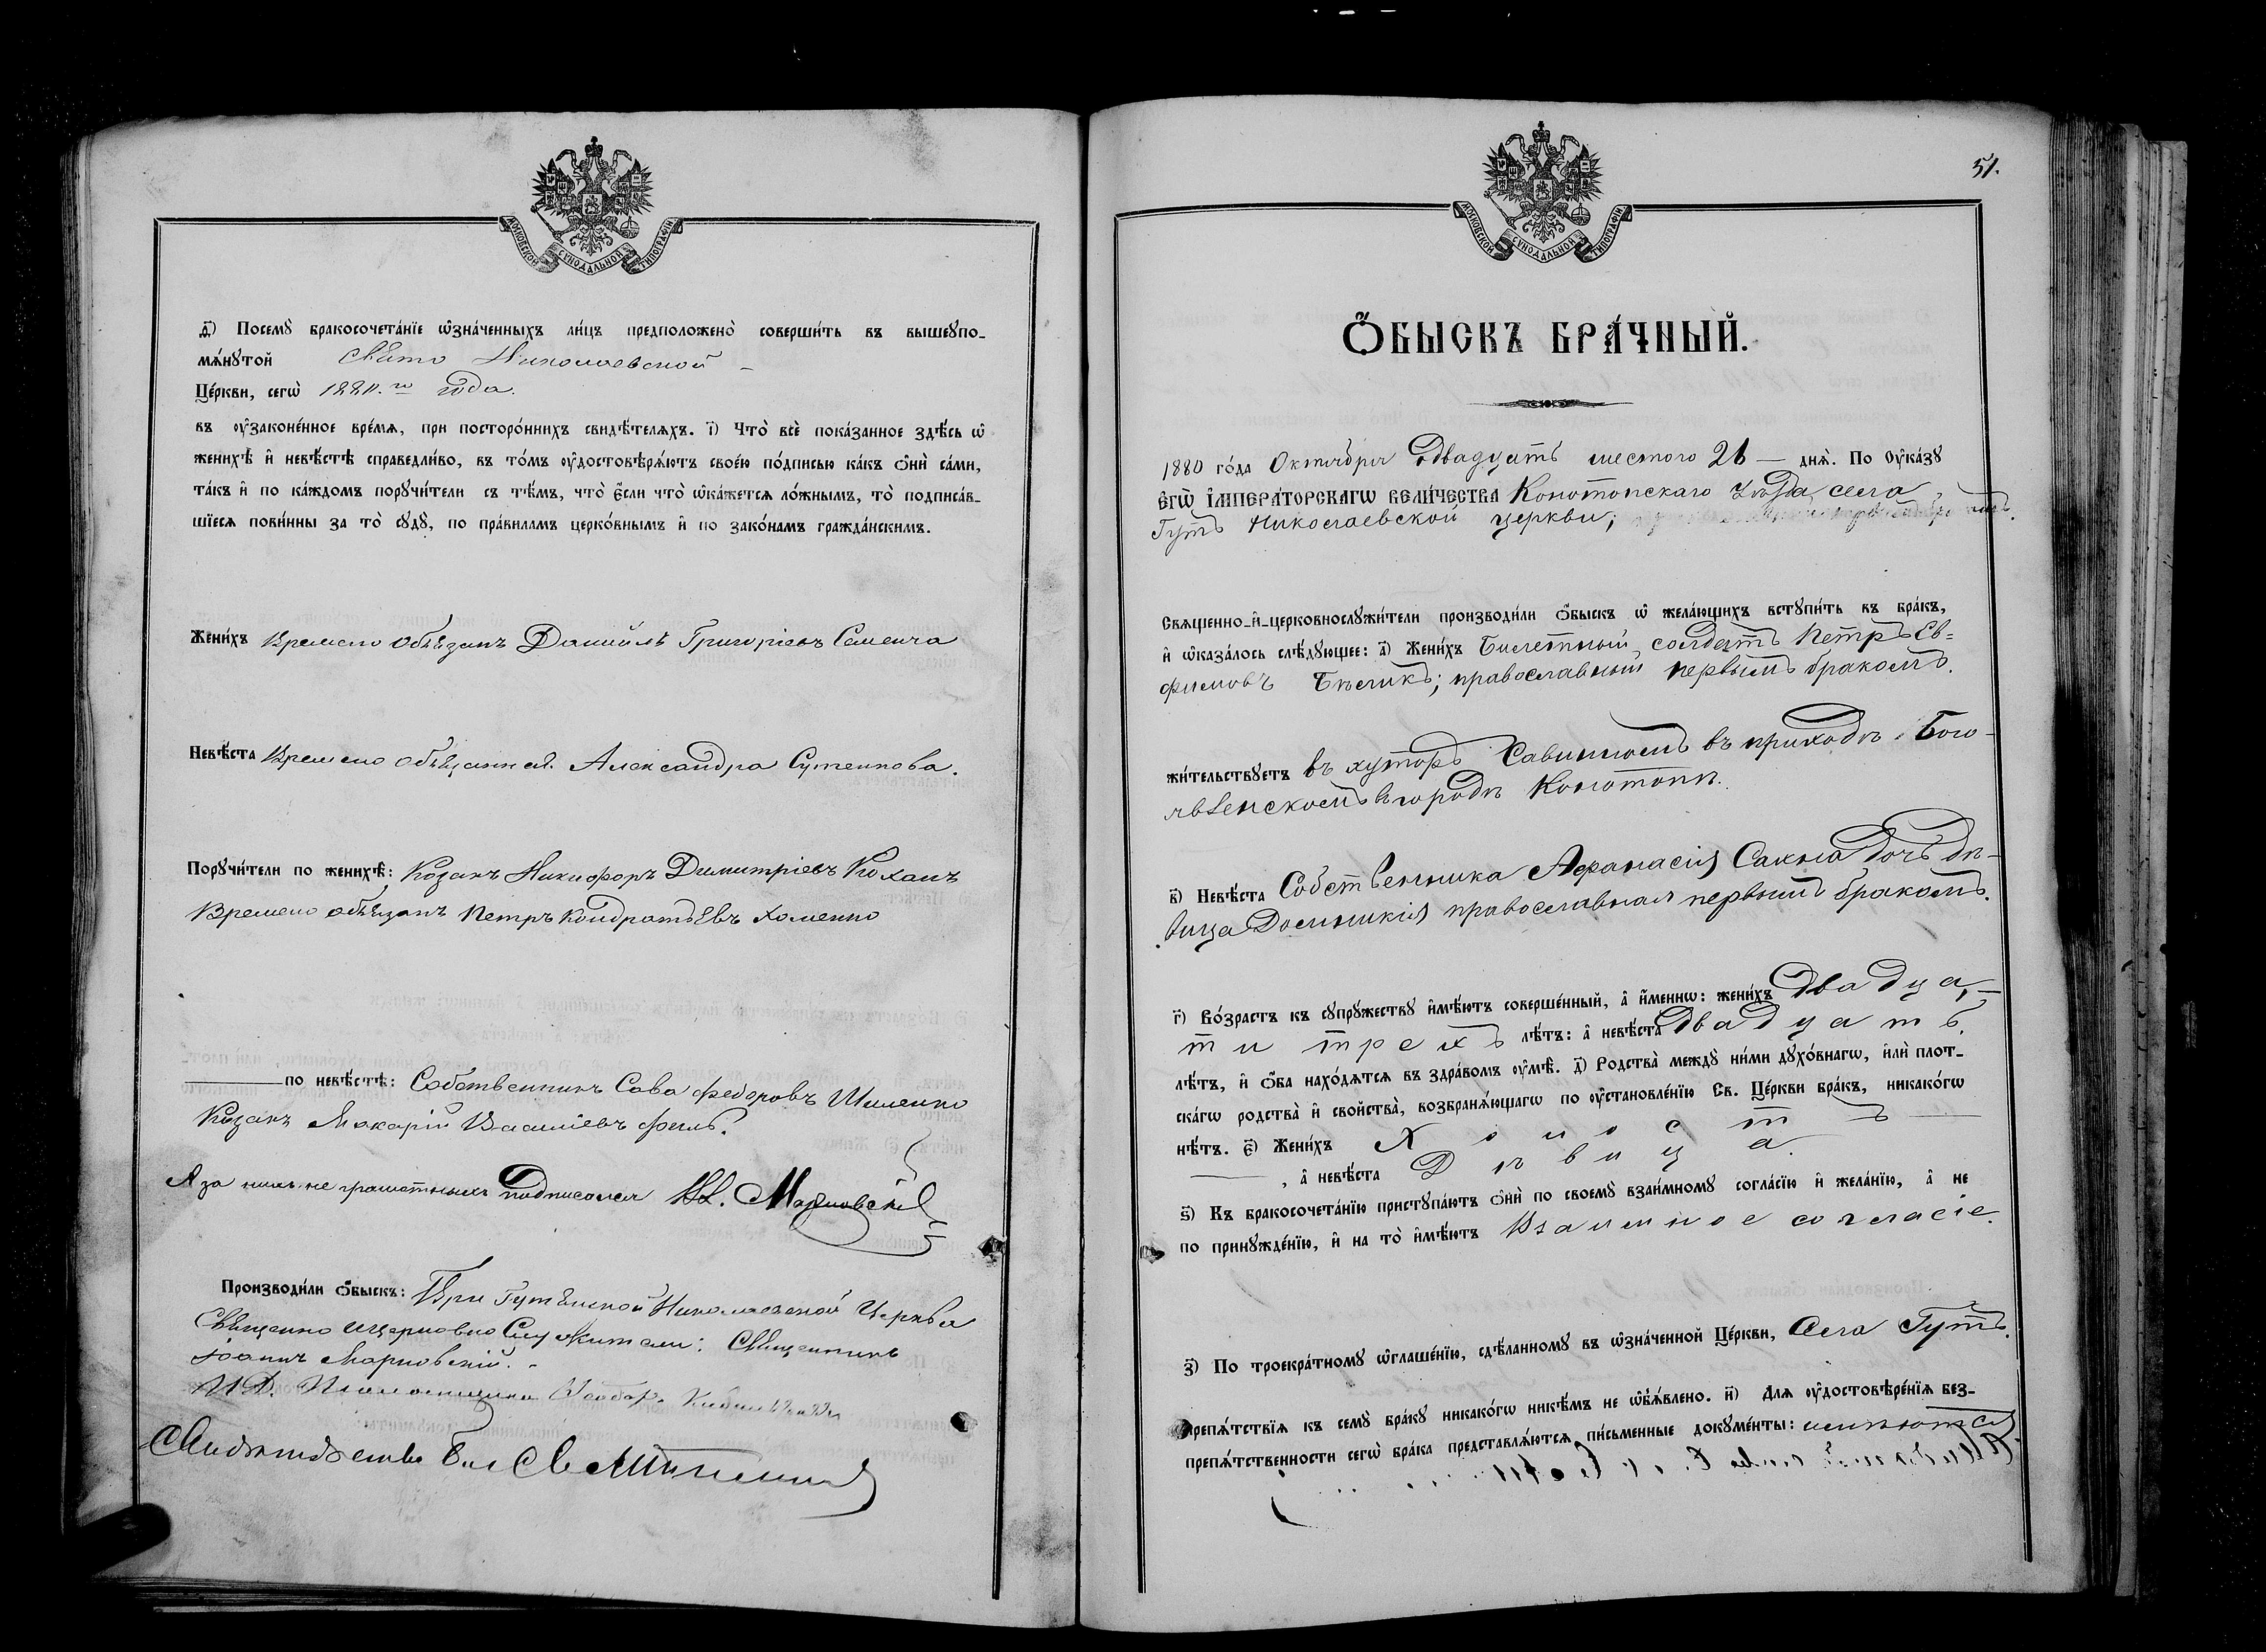 МОСКОВСКОЙ СѴНОДАЛЬНОЙ ТИПОГРАФІИ
ѳ҃) Посемꙋ̀ бракосочета́нїе ѿзна́ченныхъ ли́цъ предположено̀ соверши́ть въ вышеꙋпо-
мѧ́нꙋтой Свято Николаевской
Це́ркви, сегѡ̀ 1880.го года.
въ ᲂу҆законе́нное вре́мѧ, при посторо́ннихъ свидѣ́телѧхъ. і҃) Что̀ всѐ пока́занное здѣ́сь ѡ҆
женихѣ̀ и҆ невѣ́стѣ справедли́во, въ то́мъ ᲂу҆достовѣрѧ́ютъ свое́ю по́дписью ка́къ ѻ҆нѝ са́ми,
та́къ и҆ по ка́ждомъ порꙋчи́тели съ тѣ́мъ, что̀ є҆́сли что̀ ѡ҆ка́жетсѧ ло́жнымъ, то̀ подписа́в-
шїесѧ пови́нны за то̀ сꙋдꙋ̀, по пра́виламъ церко́внымъ и҆ по зако́намъ гражда́нскимъ.
Жени́хъ Времено Объзанъ Даниилъ Григоріевъ Семенча
Невѣ́ста Времено объзанная Александра Сутенкова.
Порꙋчи́тели по женихѣ̀: Козакъ Никифоръ Димитріевъ Коханъ
Времено объзанъ Петръ Кондратьевъ Хоменко
по невѣ́стѣ: Собственникъ Сава Федоровъ Шиленко
Козакъ Макарій Васильевъ
Я за нихъ не грамотныхъ подписался Марновскій
Производи́ли ѻ҆́быскъ: При Гутянской Николаевской Церкви
Священно и церковно Служители: Священникъ
Іоаннъ Марновскій.
И.Д. Псаломщика Ѳеодоръ
МОСКОВСКОЙ СѴНОДАЛЬНОЙ ТИПОГРАФІИ
51.
Ѻ҆́БЫСКЪ БРА́ЧНЫЙ.
1880 го́да Октября двадцать шестого 26 — днѧ̀. По ᲂу҆ка́зꙋ
Є҆гѡ̀ І҆мпера́торскагѡ Вели́чества Конотопскаго уѣзда, села
Гутъ Николаевской церкви;
Свѧщенно-и҆-церковнослꙋжи́тели производи́ли ѻ҆́быскъ ѡ҆ жела́ющихъ встꙋпи́ть въ бра́къ,
и҆ ѡ҆каза́лось слѣ́дꙋющее: а҃) Жени́хъ Билетный солдатъ Петръ Ев=
фимовъ Бѣликъ; православный первымъ бракомъ.
жи́тельствꙋетъ въ хуторѣ Савинкомъ въ приходѣ Бого-
явленскомъ въ городѣ Конотопѣ.
в҃) Невѣ́ста Собственника Аѳанасія Сахна дочь дѣ-
вица Домникія православная первымъ бракомъ.
г҃) Во́зрастъ къ сꙋпрꙋ́жествꙋ и҆мѣ́ютъ соверше́нный, а҆ и҆́меннѡ: жени́хъ двадца-
ти трехъ лѣ́тъ: а҆ невѣ́ста двадцать.
лѣ́тъ, и҆ ѻ҆́ба нахо́дѧтсѧ въ здра́вомъ ᲂу҆мѣ̀. д҃) Родства̀ междꙋ̀ ни́ми дꙋхо́внагѡ, и҆лѝ плот-
ска́гѡ родства̀ и҆ свойства̀, возбранѧ́ющагѡ по ᲂу҆становле́нїю Св. Це́ркви бра́къ, никако́гѡ
нѣ́тъ. є҃) Жени́хъ Холостъ
, а҆ невѣ́ста Дѣвица.
ѕ҃) Къ бракосочета́нїю пристꙋпа́ютъ ѻ҆нѝ по своемꙋ̀ взаи́мномꙋ согла́сїю и҆ жела́нїю, а҆ не
по принꙋжде́нїю, и҆ на то̀ и҆мѣ́ютъ Взаимное согласіе.
з҃) По троекра́тномꙋ ѡ҆глаше́нїю, сдѣ́ланномꙋ въ ѿзна́ченной Це́ркви, Села Гутъ.
препѧ́тствїѧ къ семꙋ̀ бра́кꙋ никако́гѡ никѣ́мъ не ѡ҆б̾ѧ́влено. и҃) Для ᲂу҆достовѣре́нїѧ без-
препѧ́тственности сегѡ̀ бра́ка представлѧ́ютсѧ пи́сьменные докꙋме́нты: имѣются